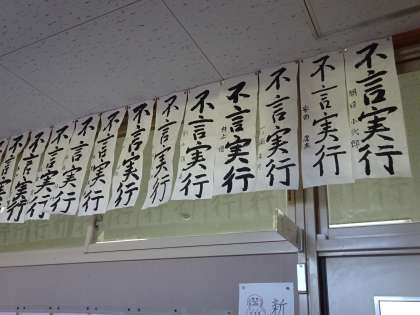 不言実行
不言実行
不言実行
不言実行
不言実行
不言実行
不言実行
不言実行
不言実行
不言実行
不言実行
不言実行
新